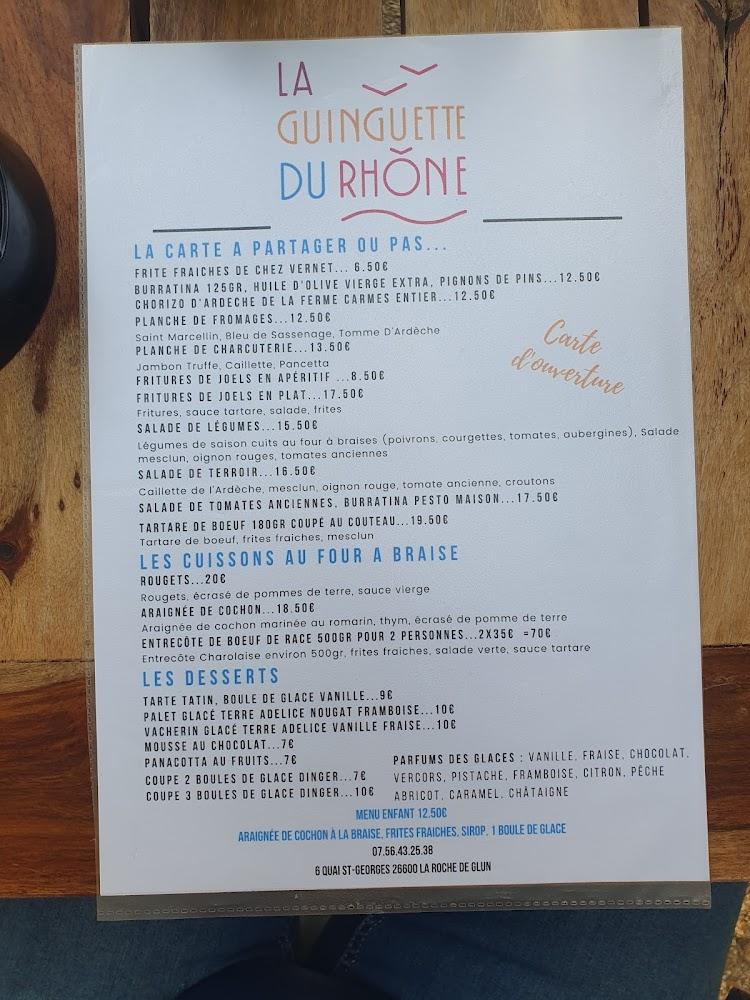 LA
GUINGUETTE
DU RHÔNE
LA CARTE A PARTAGER OU PAS...
FRITE FRAICHES DE CHEZ VERNET... 6.50€
BURRATINA 125GR, HUILE D'OLIVE VIERGE EXTRA, PIGNONS DE PINS...12.50€
CHORIZO D'ARDECHE DE LA FERME CARMES ENTIER...12.50€
PLANCHE DE FROMAGES...12.50€
Saint Marcellin, Bleu de Sassenage, Tomme D'Ardèche
PLANCHE DE CHARCUTERIE...13.50€
Jambon Truffe, Caillette, Pancetta
FRITURES DE JOELS EN APÉRITIF ...8.50€
FRITURES DE JOELS EN PLAT...17.50€
Fritures, sauce tartare, salade, frites
Carte
d'ouverture
SALADE DE LÉGUMES...15.50€
Légumes de saison cuits au four à braises (poivrons, courgettes, tomates, aubergines), Salade
mesclun, oignon rouges, tomates anciennes
SALADE DE TERROIR...16.50€
Caillette de l'Ardèche, mesclun, oignon rouge, tomate ancienne, croutons
SALADE DE TOMATES ANCIENNES, BURRATINA PESTO MAISON...17.50€
TARTARE DE BOEUF 180GR COUPÉ AU COUTEAU...19.50€
Tartare de boeuf, frites fraiches, mesclun
LES CUISSONS AU FOUR A BRAISE
ROUGETS...20€
Rougets, écrasé de pommes de terre, sauce vierge
ARAIGNÉE DE COCHON...18.50€
Araignée de cochon marinée au romarin, thym, écrasé de pomme de terre
ENTRECÔTE DE BOEUF DE RACE 500GR POUR 2 PERSONNES...2X35€ =70€
Entrecôte Charolaise environ 500gr, frites fraiches, salade verte, sauce tartare
LES DESSERTS
TARTE TATIN, BOULE DE GLACE VANILLE...9€
PALET GLACÉ TERRE ADELICE NOUGAT FRAMBOISE...10€
VACHERIN GLACÉ TERRE ADELICE VANILLE FRAISE...10€
MOUSSE AU CHOCOLAT...7€
PANACOTTA AU FRUITS...7€
COUPE 2 BOULES DE GLACE DINGER...7€
COUPE 3 BOULES DE GLACE DINGER...10€
PARFUMS DES GLACES : VANILLE, FRAISE, CHOCOLAT,
VERCORS, PISTACHE, FRAMBOISE, CITRON, PÊCHE
ABRICOT, CARAMEL, CHÂTAIGNE
MENU ENFANT 12.50€
ARAIGNÉE DE COCHON À LA BRAISE, FRITES FRAICHES, SIROP, 1 BOULE DE GLACE
07.56.43.25.38
6 QUAI ST-GEORGES 26600 LA ROCHE DE GLUN